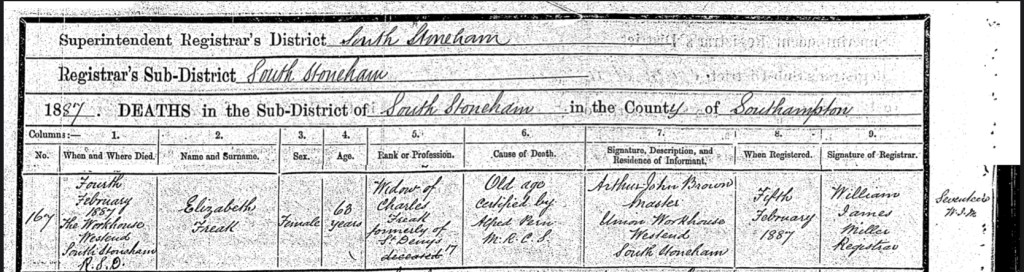 Superintendent Registrar's District South Stoneham
Registrar's Sub-District South Stoneham
1887. DEATHS in the Sub-District of South Stoneham in the County of Southampton
Columns:— 1. 2. 3. 4. 5. 6. 7. 8. 9.
No. When and Where Died. Name and Surname. Sex. Age. Rank or Profession. Cause of Death. Signature, Description, and Residence of Informant. When Registered. Signature of Registrar.
167
Fourth
February
1887
The Workhouse
Westend
South Stoneham
R.S.D.
Elizabeth
Freak
Female
63
years
Widow of
Charles
Freak
formerly of
St Denys
deceased
Old age
certified by
Alfred
M.R.C.S.
Arthur John Brown
Master
Union Workhouse
Westend
South Stoneham
Fifth
February
1887
William
James
Miller
Registrar
W.J.M.